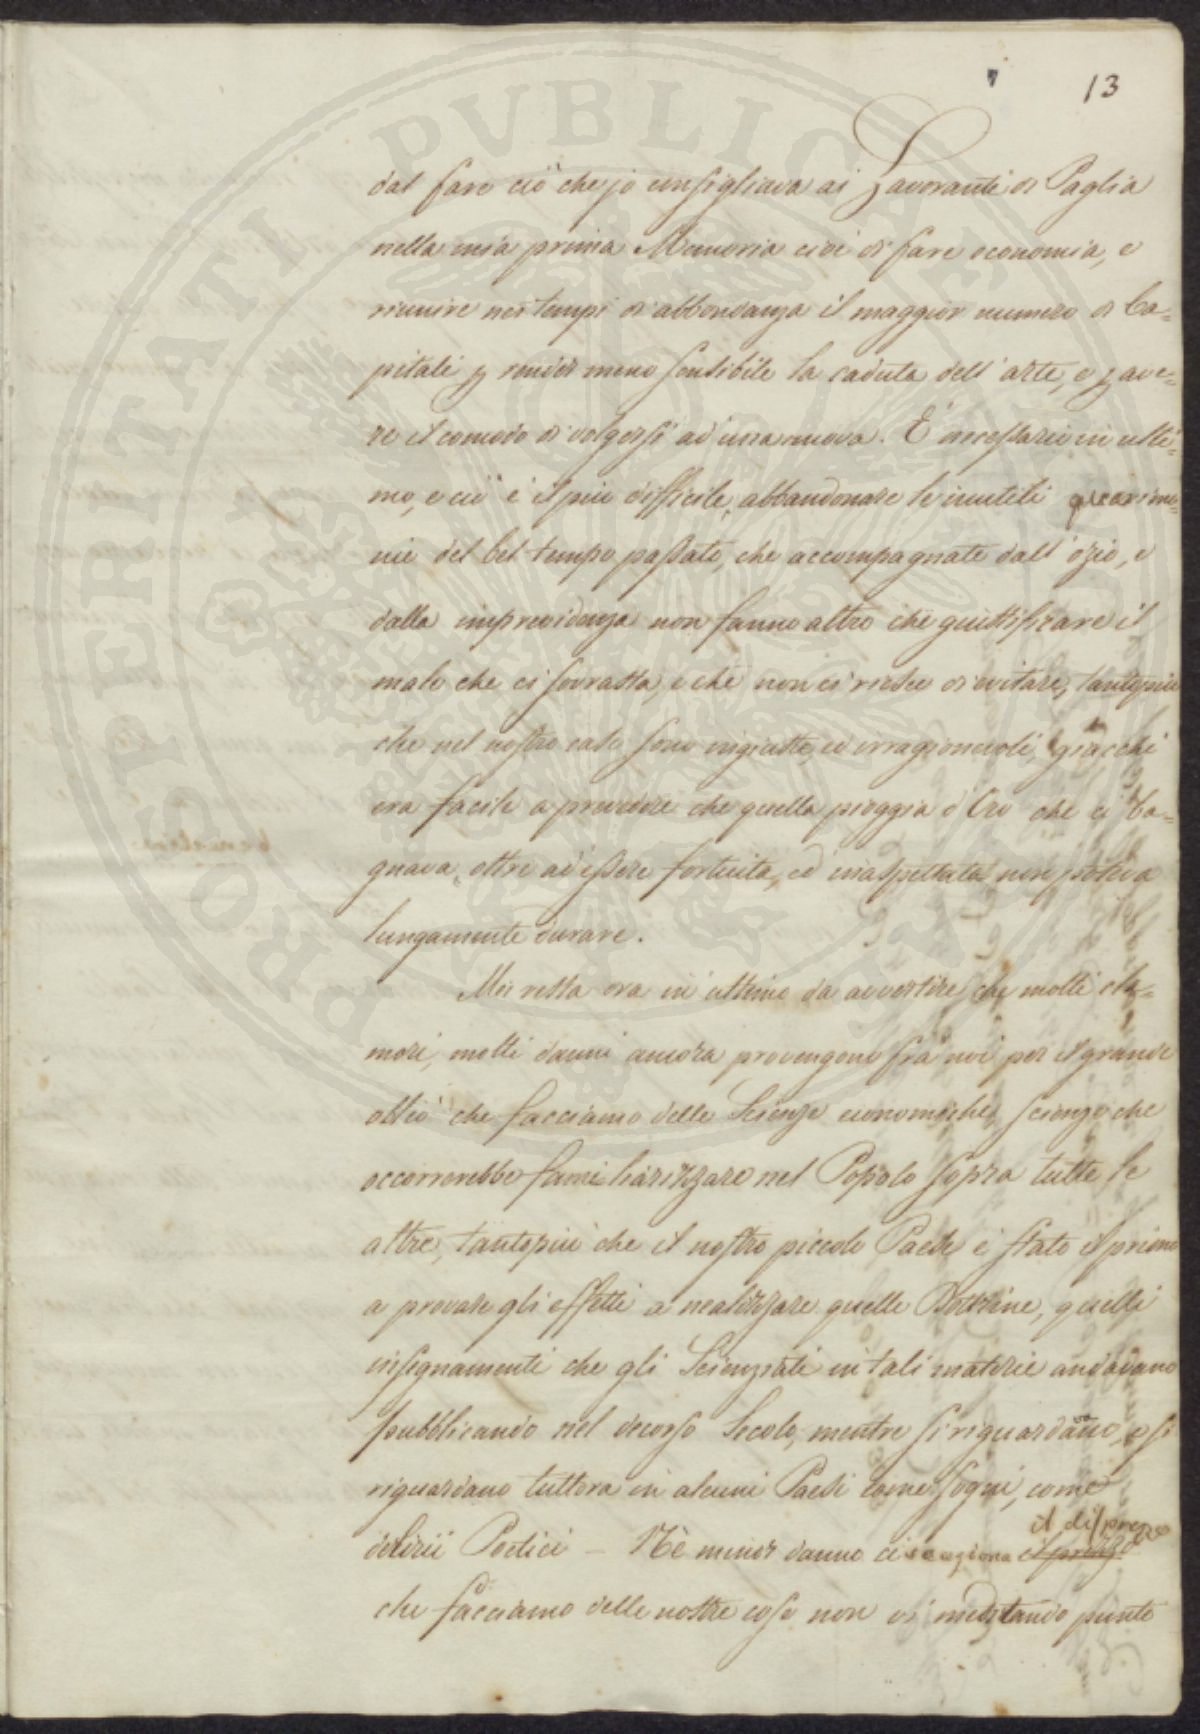 13
dal fare ciò che jo consigliava ai Lavoranti di Paglia
nella mia prima Memoria cioè di fare economia, e
riunire nei tempi di abbondanza il maggior numero di Ca=
pitali p render meno sensibile la caduta dell'arte, e p ave=
re il comodo di volgersi ad una nuova. È necessario in ulti=
mo, e ciò è il più difficile, abbandonare le inutili querimo=
nie del bel tempo passato, che accompagnate dall'ozio, e
dalla imprevidenza non fanno altro che giustificare il
male che ci sovrasta, e che non ci riesce di evitare, tantopiù
che nel nostro caso sono ingiuste, ed irragionevoli, giacchè
era facile a prevedere che quella pioggia d'Oro che ci ba=
gnava, oltre ad essere fortuita, ed inaspettata non poteva
lungamente durare.
Mi resta ora in ultimo da avvertire che molti cla=
mori, molti danni ancora provengono frà noi per il grande
oblio che facciamo delle Scienze economiche, scienze che
occorrerebbe familiarizzare nel Popolo sopra tutte le
altre, tantopiù che il nostro piccolo Paese è stato il primo
a provare gli effetti a realizzare quelle Dottrine, quelli
insegnamenti che gli Scienziati in tali materie andavano
pubblicando nel decorso Secolo, mentre si riguardavano, e si
riguardano tuttora in alcuni Paesi come sogni, come
delirii Poetici – Nè minor danno ci cagiona il prezzo il disprezzo
che facciamo delle nostre cose non vi meditando punto
PROSPERITATI PVBLICAE